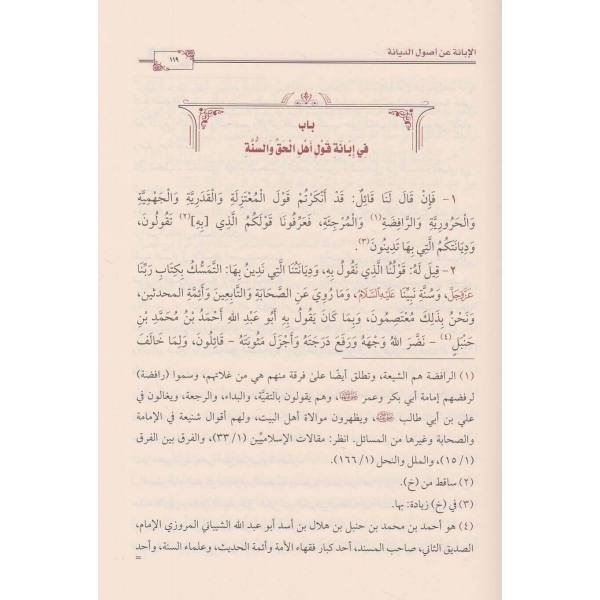 الإبانة عن أصول الديانة
١١٩
باب
فِي إِبَانَة قَوْل أَهْل الْحَقِّ وَالسُّنَّة
١- فَإِنْ قَالَ لَنَا قَائِلٌ: قَدْ أَنْكَرْتُمْ قَوْلَ الْمُعْتَزِلَةِ وَالْقَدَرِيَّةِ وَالْجَهْمِيَّةِ
وَالْحَرُورِيَّةِ وَالرَّافِضَةِ(١) وَالْمُرْجِئَةِ، فَعَرِّفُونَا قَوْلَكُمُ الَّذِي [بِهِ](٢) تَقُولُونَ،
وَدِيَانَتَكُمُ الَّتِي بِهَا تَدِينُونَ(٣).
٢- قِيلَ لَهُ: قَوْلُنَا الَّذِي نَقُولُ بِهِ، وَدِيَانَتُنَا الَّتِي نَدِينُ بِهَا: التَّمَسُّكُ بِكِتَابِ رَبِّنَا
عَزَّوَجَلَّ، وَسُنَّةِ نَبِيِّنَا عَلَيْهِ السَّلَامُ، وَمَا رُوِيَ عَنِ الصَّحَابَةِ وَالتَّابِعِينَ وَأَئِمَّةِ المحدثين،
وَنَحْنُ بِذَلِكَ مُعْتَصِمُونَ، وَبِمَا كَانَ يَقُولُ بِهِ أَبُو عَبْدِ اللهِ أَحْمَدُ بْنُ مُحَمَّدِ بْنِ
حَنْبَلٍ(٤) - نَضَّرَ اللهُ وَجْهَهُ وَرَفَعَ دَرَجَتَهُ وَأَجْزَلَ مَثُوبَتَهُ - قَائِلُونَ، وَلِمَا خَالَفَ
(١) الرافضة هم الشيعة، وتطلق أيضًا على فرقة منهم هي من غلاتهم، وسموا (رافضة)
لرفضهم إمامة أبي بكر وعمر، وهم يقولون بالتقيَّة، والبداء، والرجعة، ويغالون في
علي بن أبي طالب، ويظهرون موالاة أهل البيت، ولهم أقوال شنيعة في الإمامة
والصحابة وغيرها من المسائل. انظر: مقالات الإسلاميِّين (١/ ٣٣)، والفرق بين الفرق
(١/ ١٥)، والملل والنحل (١/ ١٦٦).
(٢) ساقط من (خ).
(٣) في (خ) زيادة: بها.
(٤) هو أحمد بن محمد بن حنبل بن هلال بن أسد أبو عبد الله الشيباني المروزي الإمام،
الصديق الثاني، صاحب المسند، أحد كبار فقهاء الأمة وأئمة الحديث، وعلماء السنة، وأحد
=